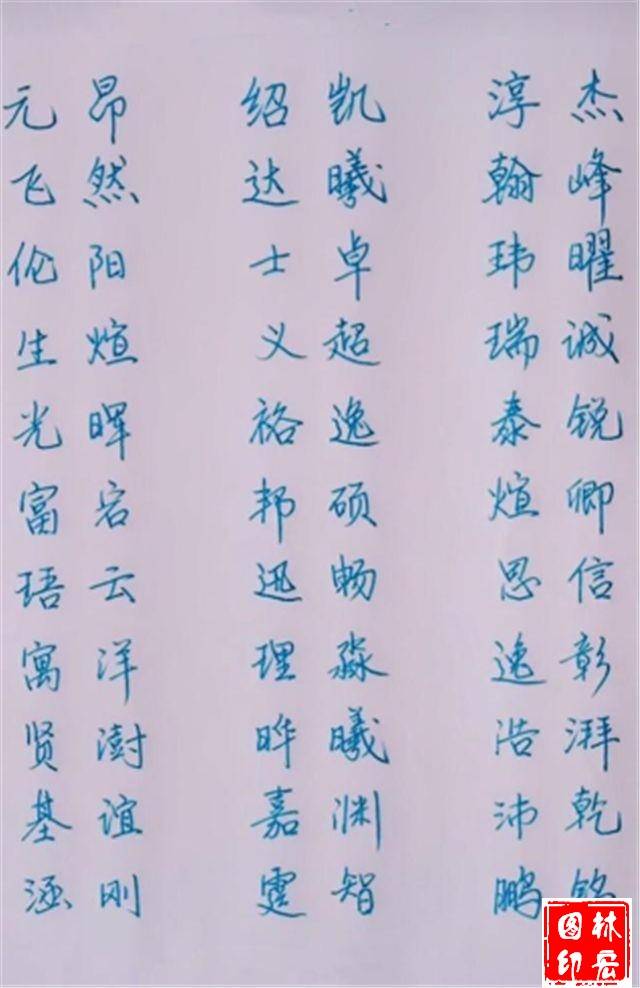 元昂 绍凯 淳杰
飞然 达曦 翰峰
伦阳 士卓 玮曜
生煊 义超 瑞诚
光晖 裕逸 泰锐
富宕 邦硕 煊卿
珸云 迅畅 思信
寓洋 理淼 逸彰
贤澍 晔曦 浩湃
基谊 嘉渊 沛乾
涵刚 霆智 鹏铭
图林
印宏